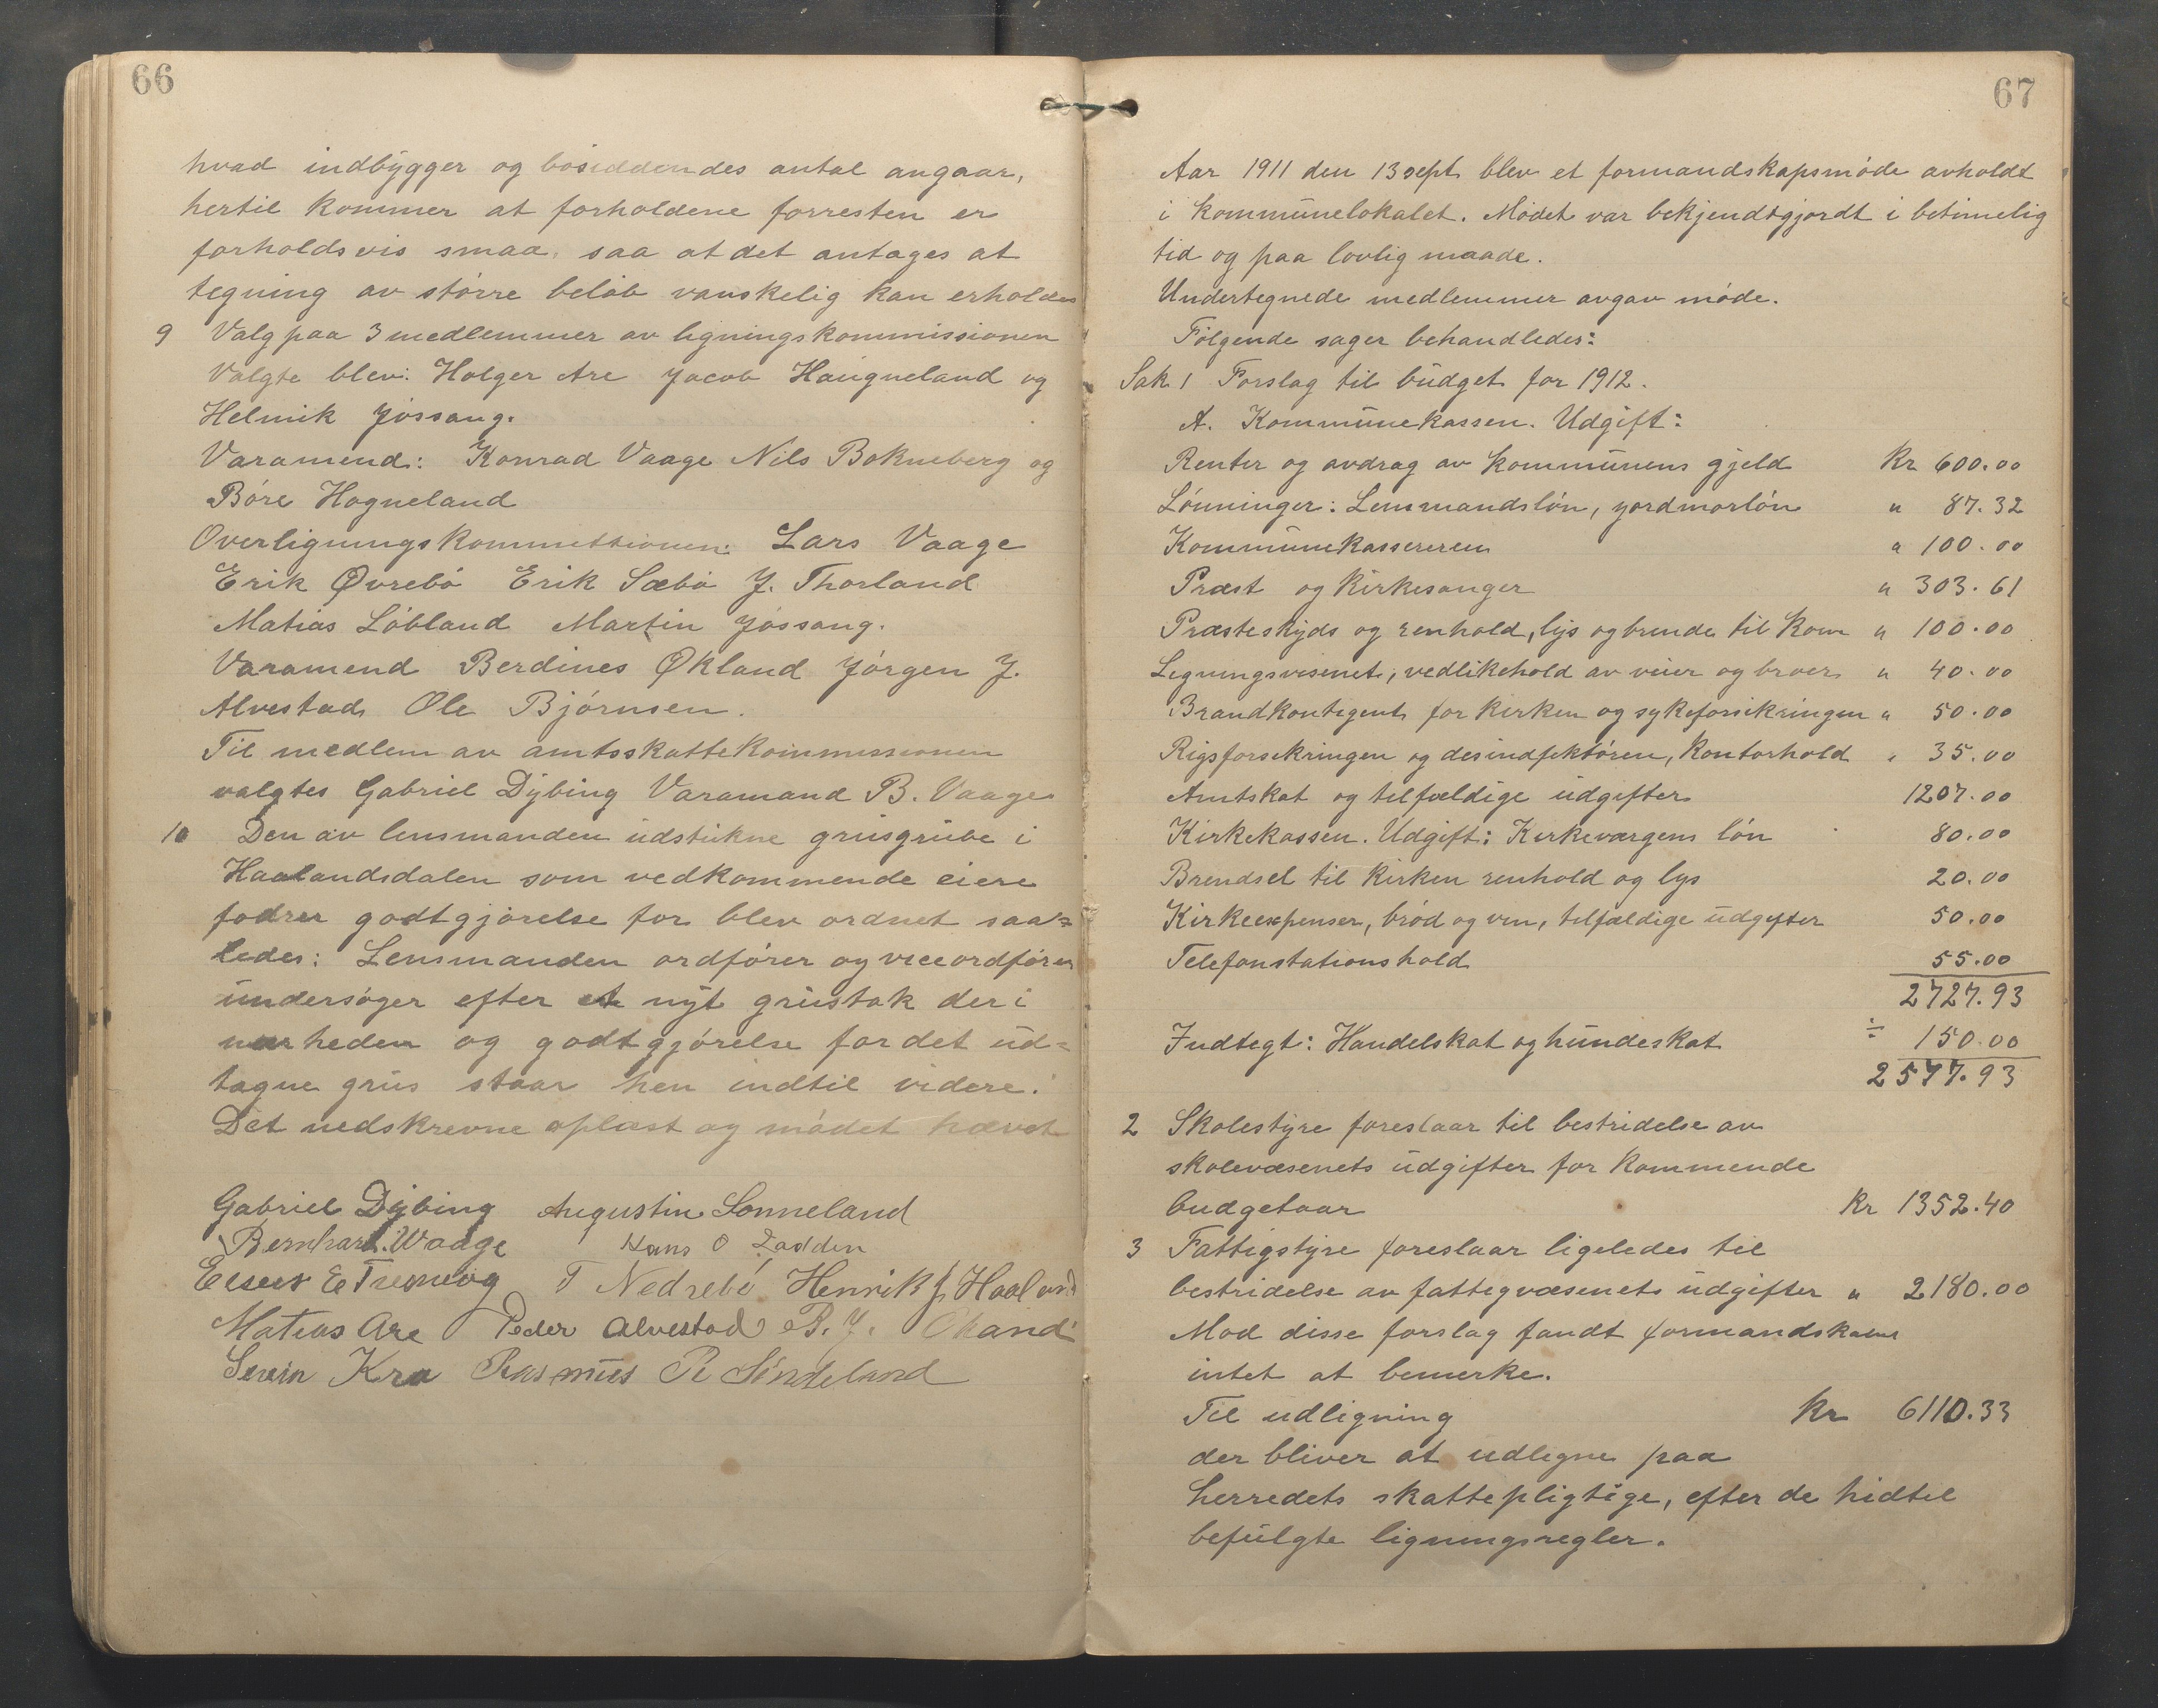 66
hvad indbygger og bosiddendes antal angaar,
hertil kommer at forholdene forresten er
forholdsvis smaa, saa at det antages at
tegning av större belöb vanskelig kan erholdes
9 Valg paa 3 medlemmer av ligningskommissionen
Valgte blev: Holger Are Jacob Haugneland og
Helmik Jössang.
Varamend: Konrad Vaage Nils Bokneberg og
Böre Hogneland
Overligningskommissionen: Lars Vaage
Erik Øvrebö Erik Sæbö J. Thorland
Matias Löbland Martin Jössang.
Varamend Berdines Økland Jörgen J.
Alvestad Ole Björnsen.
Til medlem av amtsskattekommissionen
valgtes Gabriel Dybing Varamand B. Vaage
10 Den av lensmanden udstukne grusgrube i
Haalandsdalen som vedkommende eiere
fodrer godtgjörelse for blev ordnet saa=
ledes: Lensmanden ordförer og viceordförer
undersöger efter et nyt grustak der i
nærheden og godtgjörelse for det ud=
tagne grus staar hen indtil videre.
Det nedskrevne oplæst og mödet hævet
Gabriel Dybing Augustin Sonneland
Bernhard. Waage Hans O
T Nedrebö Henrik J. Haaland
Matias Are Peder Alvestad B. J. Økland
Severin Kra Rasmus R Sindeland
67
Aar 1911 den 13 sept. blev et formandskapsmöde avholdt
i kommunelokalet. Mödet var bekjendtgjordt i betimelig
tid og paa lovlig maade.
Undertegnede medlemmer avgav möde.
Fölgende sager behandledes:
Sak 1 Forslag til budget for 1912.
A. Kommunekassen. Udgift:
Renter og avdrag av kommunens gjeld Kr 600.00
Lönninger: Lensmandslön, jordmorlön " 87.32
Kommunekassereren " 100.00
Præst og Kirkesanger " 303.61
Præsteskyds og renhold, lys og brende til kom " 100.00
Ligningsvesenet, vedlikehold av veier og broer " 40.00
Brandkontigent for kirken og sykeforsikringen " 50.00
Rigsforsikringen og desindfektören, kontorhold " 35.00
Amtskat og tilfældige udgifter 1207.00
Kirkekassen. Udgift: Kirkeværgens lön 80.00
Brendsel til kirken renhold og lys 20.00
Kirkeexpenser, bröd og vin, tilfældige udgifter 50.00
Telefonstationshold 55.00
2727.93
Indtegt: Handelskat og hundeskat ÷ 150.00
2577.93
2 Skolestyre foreslaar til bestridelse av
skolevæsenets udgifter for kommende
budgetaar Kr 1352.40
3 Fattigstyre foreslaar ligeledes til
bestridelse av fattigvæsenets udgifter " 2180.00
Mod disse forslag fandt formandskabet
intet at bemerke.
Til udligning Kr 6110.33
der bliver at udligne paa
herredets skattepligtige, efter de hidtil
befulgte ligningsregler.